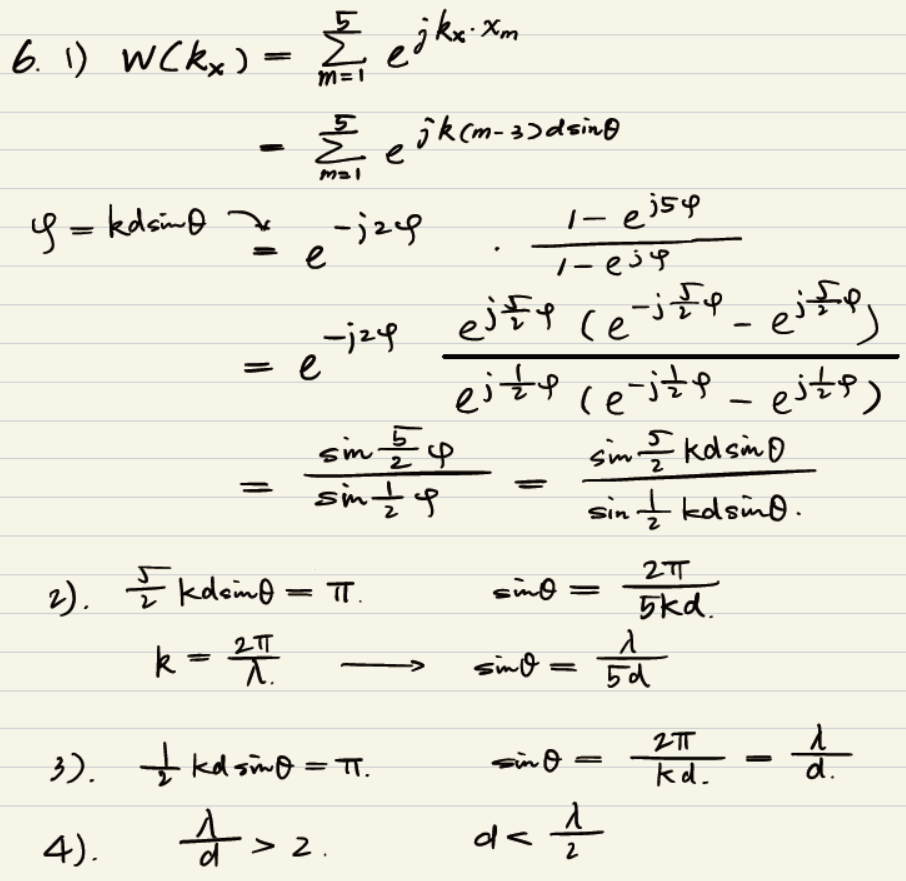 6. 1) W(kₓ) = ∑_{m=1}^{5} e^{jkₓ·xₘ}
= ∑_{m=1}^{5} e^{jk(m-3)dsinθ}
φ = kdsinθ ↘ = e^{-j2φ} · (1 - e^{j5φ}) / (1 - e^{jφ})
= e^{-j2φ} e^{j5/2φ} (e^{-j5/2φ} - e^{j5/2φ}) / e^{j1/2φ} (e^{-j1/2φ} - e^{j1/2φ})
= sin 5/2 φ / sin 1/2 φ = sin 5/2 kdsinθ / sin 1/2 kdsinθ.
2). 5/2 kdsinθ = π. sinθ = 2π / 5kd.
k = 2π / λ. ⟶ sinθ = λ / 5d
3). 1/2 kdsinθ = π. sinθ = 2π / kd. = λ / d.
4). λ / d > 2. d < λ / 2